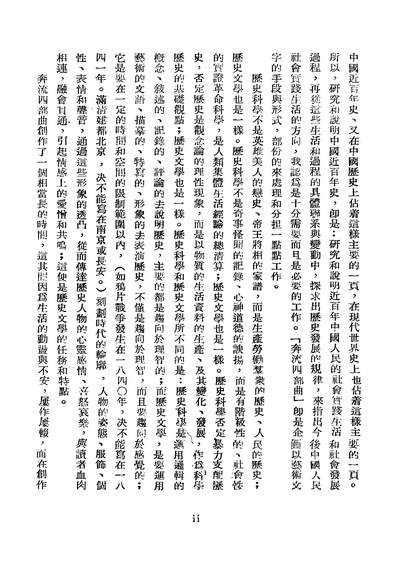 中國近百年史、又在中國歷史上佔着這樣主要的一頁，在現代世界史上也佔着這樣主要的一頁。
所以，研究和說明中國近百年史，卽是：研究和說明近百年中國人民的社會實踐生活和社會發展
過程，再從這些生活和過程的具體聯系與變動中，探求出歷史發展的規律，來指出今後中國人民
社會實踐生活的方向，我認爲是十分需要而且是必要的工作。「奔流四部曲」卽是企圖以藝術文
字的手段與形式，部份的來處理和分担一點點工作。
歷史科學不是英雄美人的戀史、帝王將相的家譜，而是生產勞働羣衆的歷史、人民的歷史；
歷史文學也是一樣。歷史科學不是奇事怪聞的記錄、心神道德的讚揚，而是有階級性的、社會性
的實證革命科學，是人類集體生活經驗的總清算；歷史文學也是一樣。歷史科學否定暴力支配歷
史，否定歷史是觀念論的理性現象，而是以物質的生活資料的生產、及其變化、發展，作爲科學
歷史的基礎觀點；歷史文學也是一樣。歷史科學和歷史文學所不同的是：歷史科學是運用邏輯的
概念、敘述的、記錄的、評論的去說明歷史，主要的都是趨向於理智的；而歷史文學，是要運用
藝術的文語、描摹的、特寫的、形象的去表演歷史，不僅是趨向於理智，而且要趨向於感覺的；
它是要在一定的時間和空間的限制範圍以內，（如鴉片戰爭發生在一八四〇年，決不能寫在一八
四一年。滿清建都北京，決不能寫在南京或長安。）刻劃時代的輪廓，人物的姿態、服飾、個
性、表情和聲音，通過這些形象的透凸，從而傳達歷史人物的心靈激情、喜怒哀樂，與讀者血肉
相連，融會貫通，引起情感上的愛憎和共鳴；這便是歷史文學的任務和特點。
奔流四部曲創作了一個相當長的時間，這其間因爲生活的動盪與不安，屢作屢輟，而在創作
ii